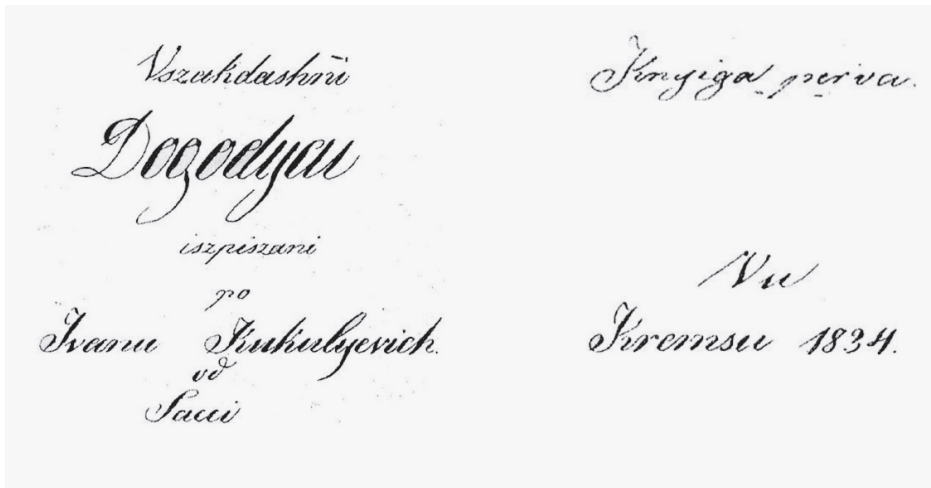 Vszakdashñi
Dogodyaii
iszpiszani
po
Ivanu Kukulyevich.
od
Sacci
Knyiga perva.
Vu
Kremsu 1834.